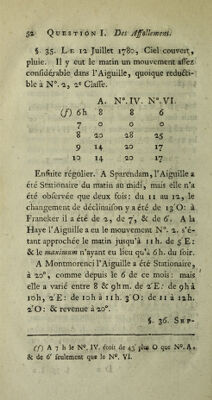 52 QUESTION I. Des Affollemens.
§. 35. LE 12 Juillet 1780, Ciel couvert,
pluie. Il y eut le matin un mouvement assez
considérable dans l'Aiguille, quoique reducti-
ble à N°. 2, 2e Classe.
A. N°. IV. N°. VI.
(f) 6h 8 8 6
7 0 0 0
8 20 28 25
9 14 20 17
10 14 20 17
Ensuite régulier. A Sparendam, l'Aiguille a
été Stationaire du matin au midi, mais elle n'a
été observée que deux fois: du 11 au 12, le
changement de déclinaison y a été de 13′O: à
Franeker il a été de 2, de 7, & de 6′. A la
Haye l'Aiguille a eu le mouvement N°. 2. s'é-
tant approchée le matin jusqu'à 11h. de 5′E:
& le maximum n'ayant eu lieu qu'à 6h. du soir.
A Montmorenci l'Aiguille a été Stationaire,
à 20°, comme depuis le 6 de ce mois: mais
elle a varié entre 8 & 9hm. de 2′E: de 9h à
10h, 2′E: de 10h à 11h. 3′O: de 11 à 12h.
2′O: & revenue à 20°.
§. 36. SEP-
(f) A 7 h le N°. IV. étoit de 45′ plus O que N°. A.
& de 6′ seulement que le N°. VI.